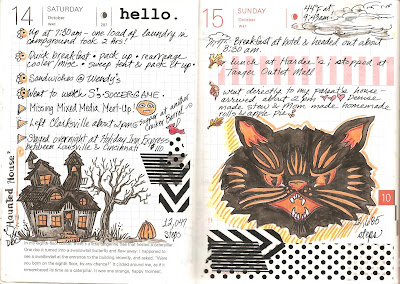 14 SATURDAY
October
287
hello.
Up at 7:30am - one load of laundry in
campground took 2 hrs!
Quick breakfast • pack up • rearrange
cooler/misc • sweep tent & pack it up.
Sandwiches @ Wendy's
Went to watch S's SOCCER GAME.
Missing Mixed Media Meet-Up!
Left Clarksville about 2pm
Supper at another
Stayed overnight at Holiday Inn Express
between Louisville & Cincinnati
"Haunted House"
12,047
steps
15 SUNDAY
October
44°F at
Breakfast at hotel & headed out about
8:30 am.
Lunch at Hardee's; stopped at
Tanger Outlet Mall
Went directly to my parents' house -
arrived about 2pm
made stew & Mom made homemade
rolls & apple Pie
10
steps